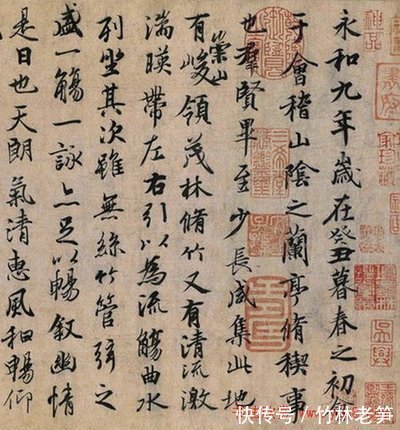 永和九年歲在癸丑暮春之初會
于會稽山陰之蘭亭脩稧事
也羣賢畢至少長咸集此地
有崇山峻領茂林脩竹又有清流激
湍暎帶左右引以為流觴曲水
列坐其次雖無絲竹管弦之
盛一觴一詠亦足以暢敘幽情
是日也天朗氣清惠風和暢仰
快传号 / 竹林老笋